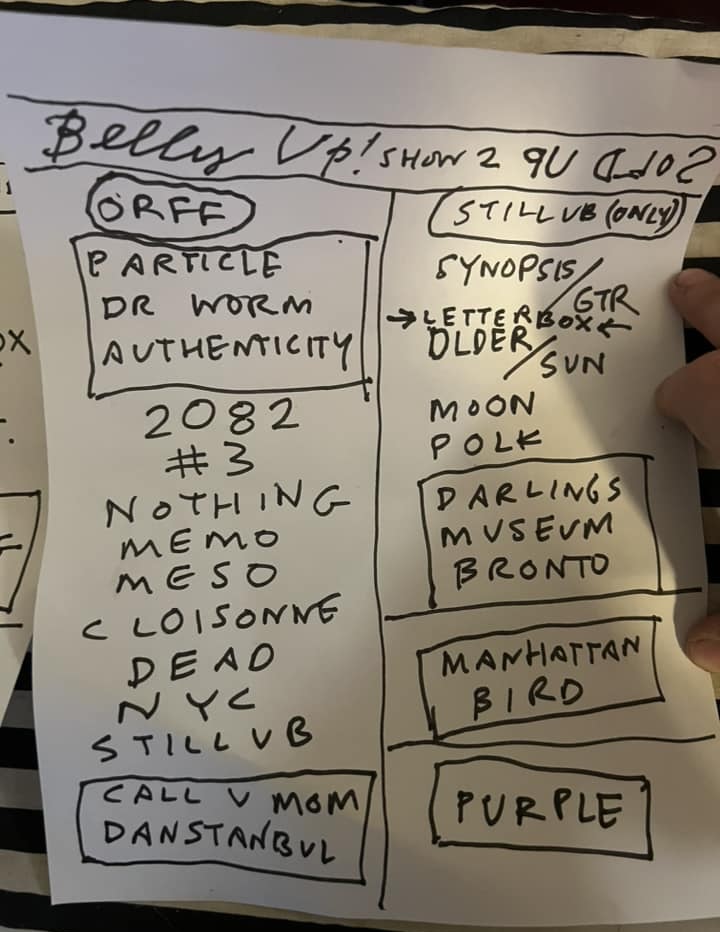 Belly Up! SHOW 2 9U
ORFF
PARTICLE
DR WORM
AUTHENTICITY
2082
#3
NOTHING
MEMO
MESO
CLOISONNE
DEAD
NYC
STILLUB
CALL U MOM
DANSTANBUL
STILLUB (ONLY)
SYNOPSIS/
GTR
→LETTERBOX←
OLDER
/SUN
MOON
POLK
DARLINGS
MUSEUM
BRONTO
MANHATTAN
BIRD
PURPLE